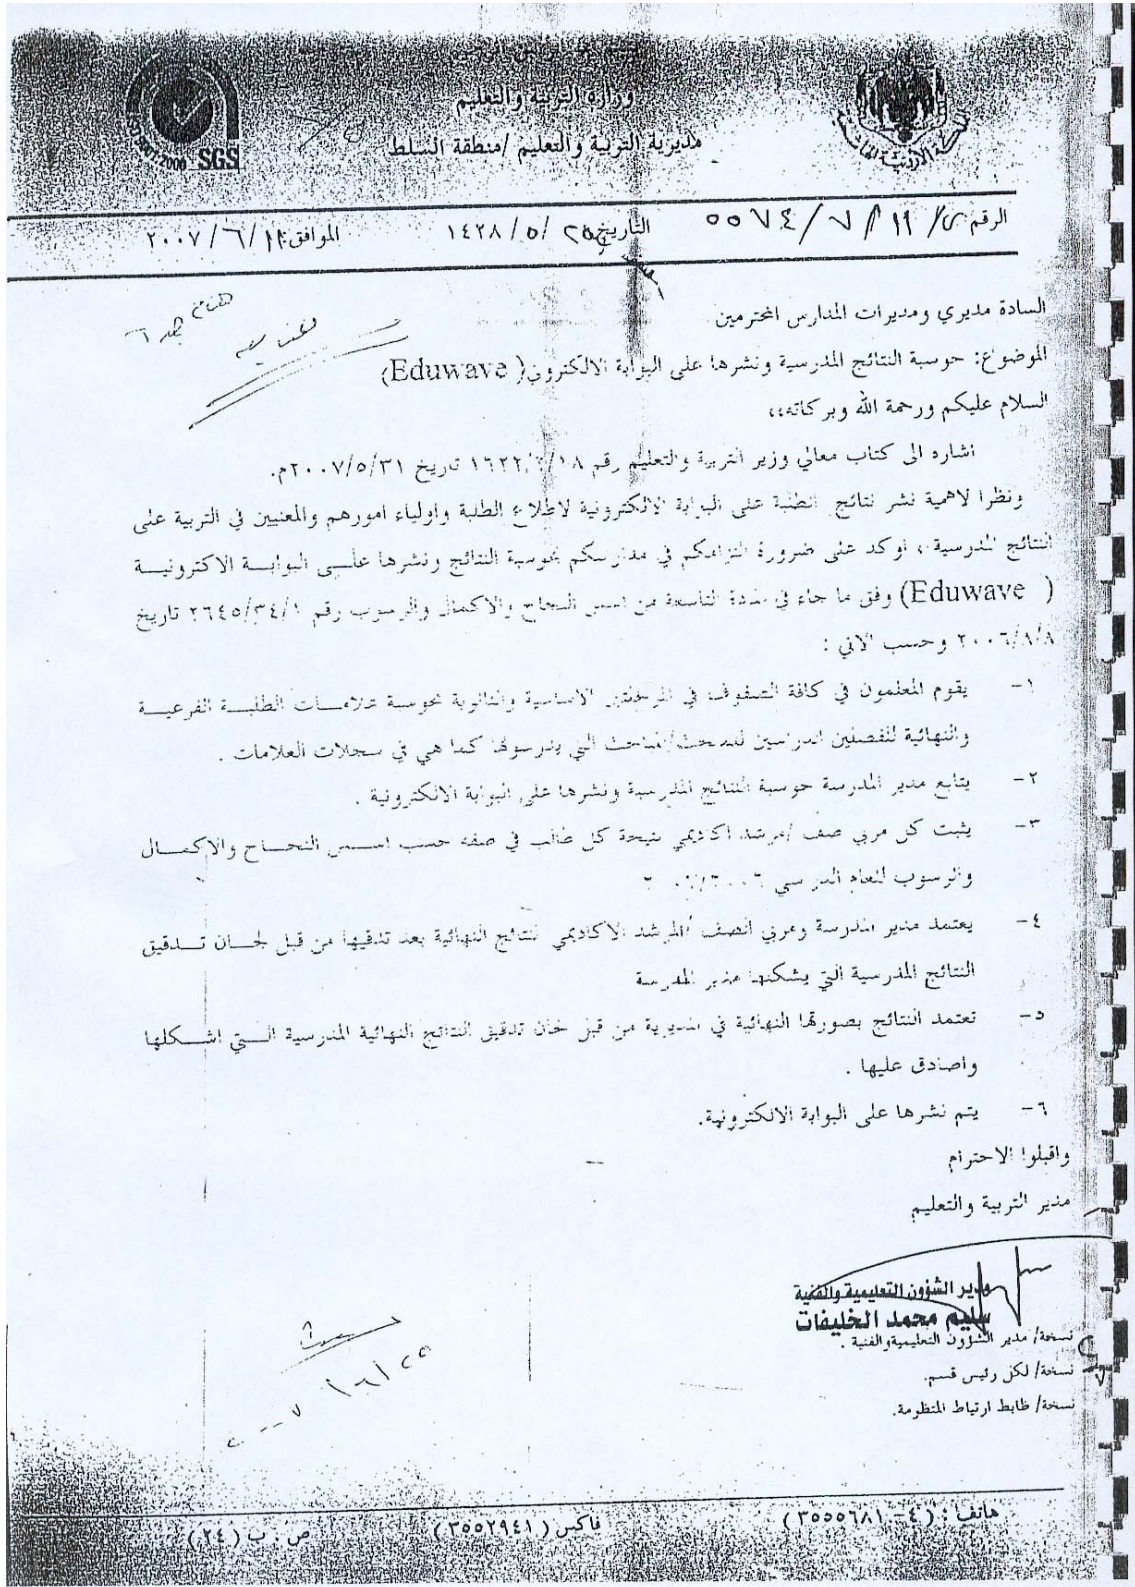 وزارة التربية والتعليم
مديرية التربية والتعليم /منطقة السلط
ISO 9001:2000 SGS
المملكة الأردنية الهاشمية
الرقم ٥٥٧٤/٧/
التاريخ /٥/١٤٢٨
الموافق /٦/٢٠٠٧
السادة مديري ومديرات المدارس المحترمين
الموضوع: حوسبة النتائج المدرسية ونشرها على البوابة الالكتروني( Eduwave)
السلام عليكم ورحمة الله وبركاته،،
اشاره الى كتاب معالي وزير التربية والتعليم رقم ١٦٢٢/٢/١٨ تاريخ ٢٠٠٧/٥/٣١م.
ونظرا لاهمية نشر نتائج الطلبة على البوابة الالكترونية لاطلاع الطلبة واولياء امورهم والمعنيين في التربية على
النتائج المدرسية، اوكد على ضرورة التزامكم في مدارسكم بحوسبة النتائج ونشرها علـى البوابـة الاكترونيـة
( Eduwave) وفق ما جاء في المادة التاسعة من اسس النجاح والاكمال والرسوب رقم ٢٦٤٥/٣٤/١ تاريخ
٢٠٠٦/٨/٨ وحسب الاتي :
١- يقوم المعلمون في كافة الصفوف في المرحلتين الاساسية والثانوية بحوسبة علامـات الطلبـة الفرعيـة
والنهائية للفصلين الدراسين للمبحث/المباحث التي يدرسونها كما هي في سجلات العلامات .
٢- يتابع مدير المدرسة حوسبة النتائج المدرسية ونشرها على البوابة الالكترونية .
٣- يثبت كل مربي صف /مرشد اكاديمي نتيجة كل طالب في صفه حسب اسـس النجـاح والاكمـال
والرسوب للعام الدراسي
٤- يعتمد مدير المدرسة ومربي الصف /المرشد الاكاديمي النتائج النهائية بعد تدقيها من قبل لجـان تـدقيق
النتائج المدرسية التي يشكلها مدير المدرسة
٥- تعتمد النتائج بصورتها النهائية في المديرية من قبل لجان تدقيق النتائج النهائية المدرسية الـتي اشـكلها
واصادق عليها .
٦- يتم نشرها على البوابة الالكترونية.
واقبلوا الاحترام
مدير التربية والتعليم
مدير الشؤون التعليمية والفنية
سليم محمد الخليفات
نسخة/ مدير الشؤون التعليمية والفنية .
نسخة/ لكل رئيس قسم.
نسخة/ ظابط ارتباط المنظومة.
هاتف : ( ٤- ٣٥٥٥٦٨١ ) فاكس ( ٣٥٥٢٩٤١ ) ص . ب ( ٢٤ )